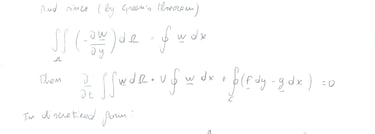 And since (by Green's theorem)
∬_Ω (-∂w/∂y) dΩ = ∮ w dx
Then ∂/∂t ∬ w dΩ + V ∮ w dx + ∮_C (f dy - g dx) = 0
In discretised form: